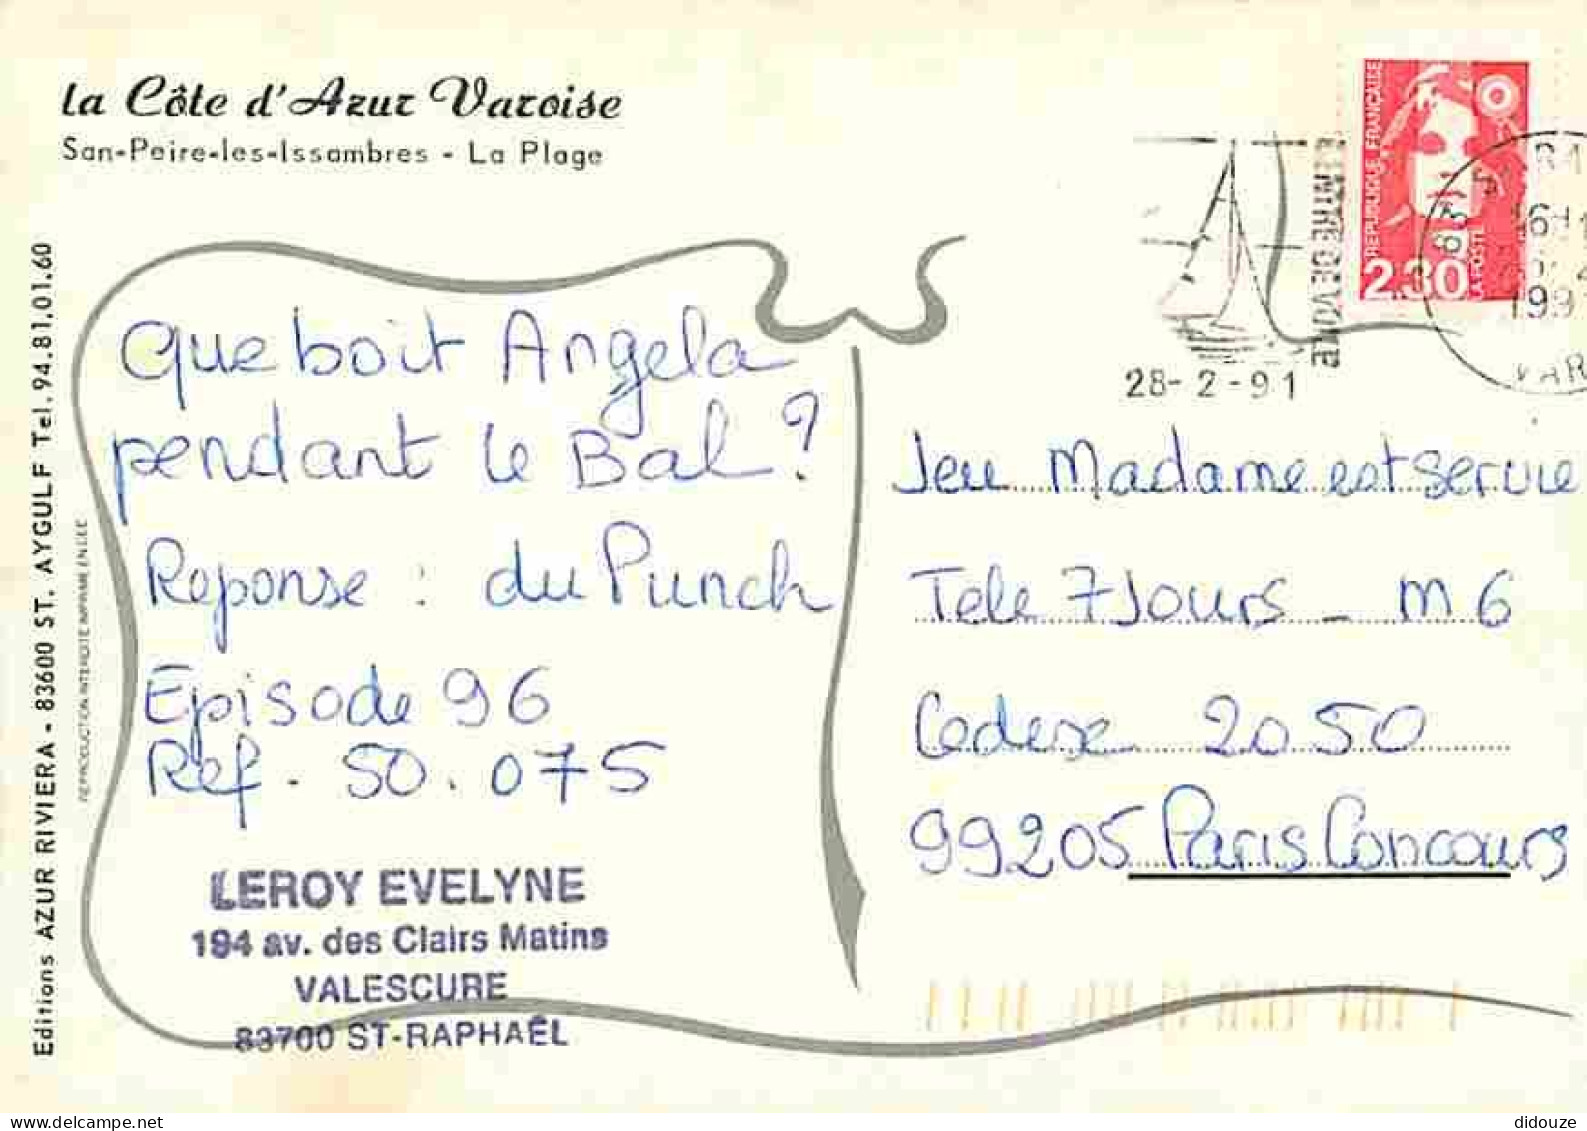 La Côte d'Azur Varoise
San-Peire-les-Issambres - La Plage
Editions AZUR RIVIERA - 83600 ST. AYGULF Tel. 94.81.01.60
REPRODUCTION INTERDITE IMPRIMÉ EN CEE
Que boit Angela
pendant le Bal ?
Reponse : du Punch
Episode 96
Ref. 50.075
LEROY EVELYNE
194 av. des Clairs Matins
VALESCURE
83700 ST-RAPHAËL
REPUBLIQUE FRANÇAISE
2.30
LA POSTE
CENTRE DE VOILE
28-2-91
VAR
Jeu Madame est servie
Tele 7 Jours - M6
Cedex 2050
99205 Paris Concours
didouze